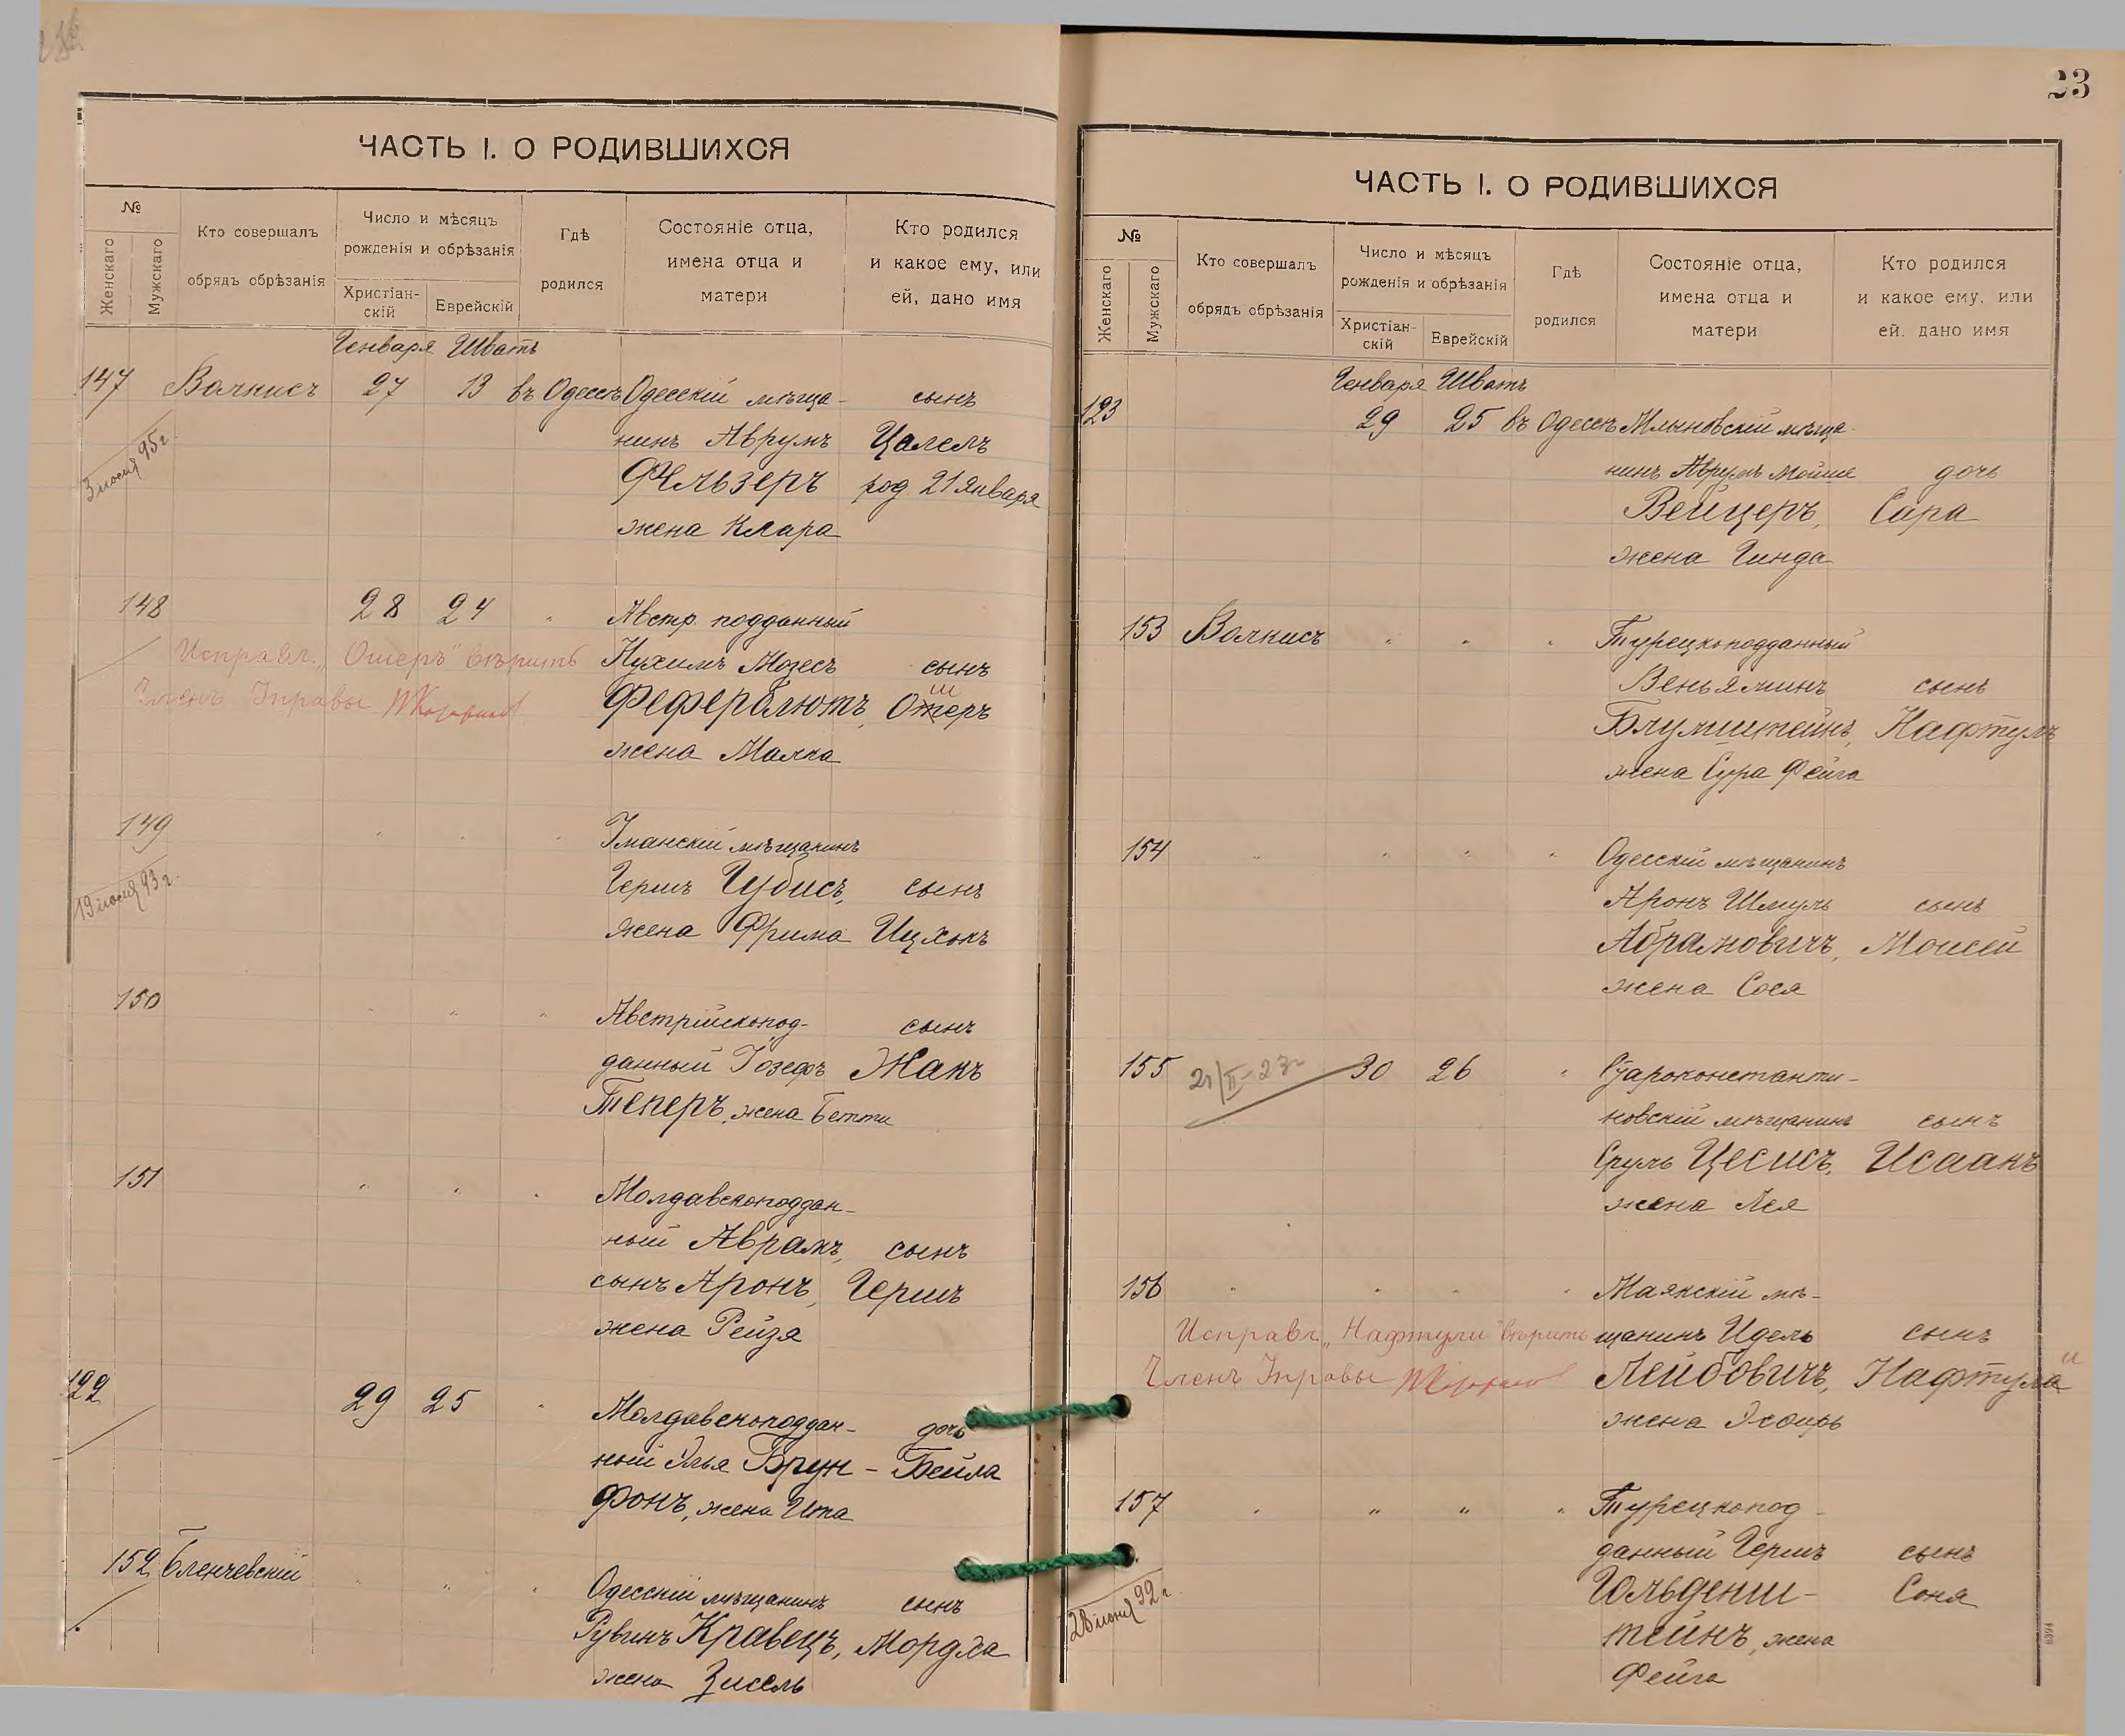 ЧАСТЬ I. О РОДИВШИХСЯ
№
Женскаго
Мужскаго
Кто совершалъ
обрядъ обрѣзанія
Число и мѣсяцъ
рожденія и обрѣзанія
Христіан-
скій
Еврейскій
Гдѣ
родился
Состояніе отца,
имена отца и
матери
Кто родился
и какое ему, или
ей, дано имя
Генваря Шватъ
147 Волкисъ 27 13 въ Одессѣ Одесскій мѣща- сынъ
нинъ Аврумъ Цалелъ
95 г.
Фельзеръ род 21 Января
жена Клара
148 28 24 " Австр. подданный
Исправл. „Ошеръ" вѣрить Нухимъ Мозесъ сынъ
Членъ Управы Феферблютъ, Ошеръ
жена Малка
149 " " " Уманскій мѣщанинъ
19 іюля 93 г. Гершъ Губисъ, сынъ
жена Фрима Ицхокъ
150 " " " Австрійскопод- сынъ
данный Іозефъ Жакъ
Теперъ, жена Бетти
151 " " " Молдавскоподдан-
ный Аврамъ, сынъ
сынъ Аронъ, Гершъ
жена Рейзя
122 29 25 " Молдавскоподдан- дочь
ный Илья Брун- Бейла
фонъ, жена Ита
152 Бленчевскій " " " Одесскій мѣщанинъ сынъ
Рувинъ Кравецъ, Мордха
жена Зисель
23
ЧАСТЬ I. О РОДИВШИХСЯ
№
Женскаго
Мужскаго
Кто совершалъ
обрядъ обрѣзанія
Число и мѣсяцъ
рожденія и обрѣзанія
Христіан-
скій
Еврейскій
Гдѣ
родился
Состояніе отца,
имена отца и
матери
Кто родился
и какое ему, или
ей. дано имя
Генваря Шватъ
123 29 25 въ Одессѣ Млыновскій мѣща-
нинъ Аврумъ Мойше дочь
Вейцеръ, Сура
жена Гинда
153 Волкисъ " " " Турецкоподданный
Веньяминъ сынъ
Блумштейнъ, Нафтулъ
жена Сура Фейга
154 " " " " Одесскій мѣщанинъ
Аронъ Шмуль сынъ
Абрамовичъ, Моисей
жена Сося
155 21/II-23г 30 26 " Староконстанти-
новскій мѣщанинъ сынъ
Сруль Цесисъ, Исаакъ
жена Лея
156 " " " " Маякскій мѣ-
Исправл. „Нафтули" вѣрить щанинъ Идель сынъ
Членъ Управы Лейбовичъ, Нафтула и
жена Эсѳирь
157 " " " " Турецкопод-
данный Гершъ сынъ
28 іюня 92 г. Гольденш- Соня
тейнъ, жена
Фейга